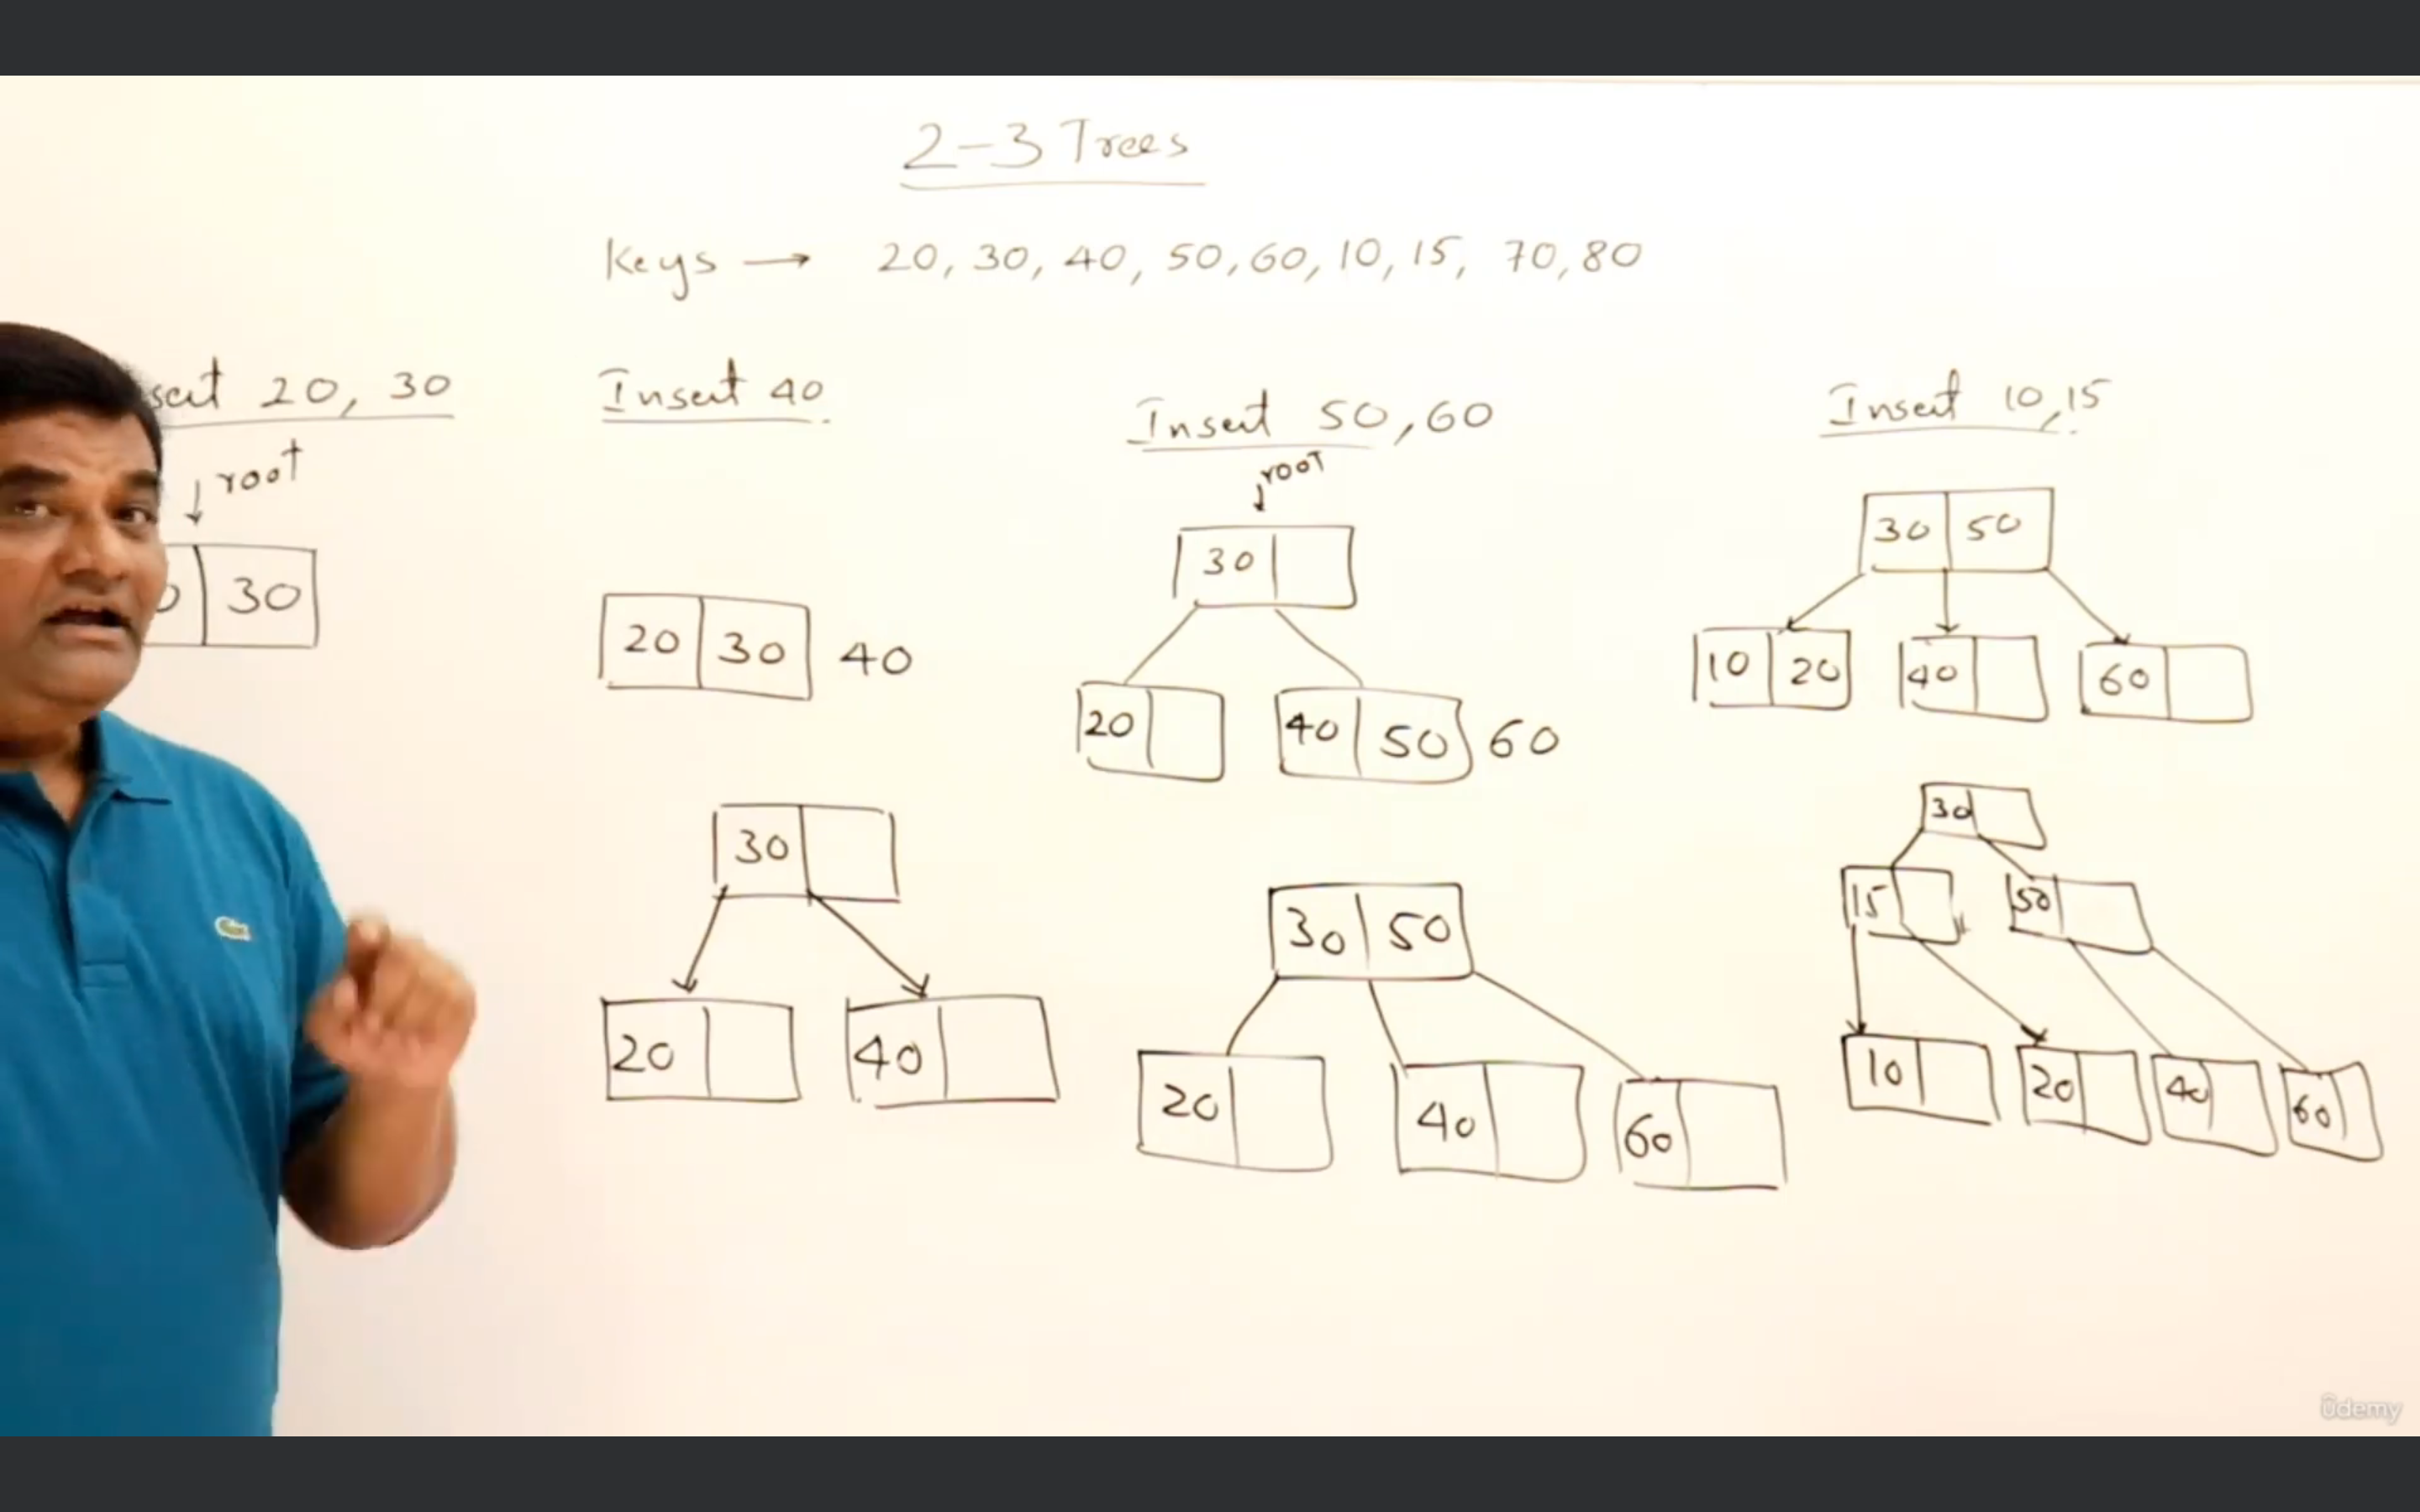 2-3 Trees
Keys → 20, 30, 40, 50, 60, 10, 15, 70, 80
20, 30
↓ root
30
Insert 40
20 30 40
30
20 40
Insert 50, 60
↓ root
30
20 40 50 60
30 50
20 40 60
Insert 10, 15
30 50
10 20 40 60
30
15 50
10 20 40 60
ûdemy